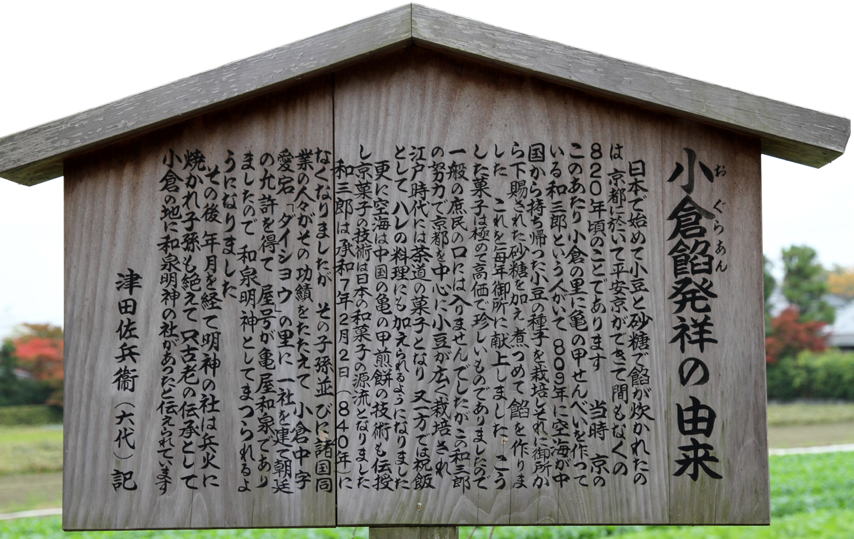 小倉餡発祥の由来
おぐらあん
日本で始めて小豆と砂糖で餡が炊かれたの
は 京都に於いて平安京ができて間もなくの
820年頃のことであります 当時 京の
このあたり小倉の里に亀の甲せんべいを作って
いる和三郎という人がいて 809年に空海が中
国から持ち帰った小豆の種子を栽培しそれに御所か
ら下賜された砂糖を加え 煮つめて 餡を作りま
した これを毎年御所に献上しました こう
した菓子は極めて高価で珍しいものでありましたので
一般の庶民の口には入りませんでしたがこの和三郎
の努力で京都を中心に小豆が広く栽培され
江戸時代には茶道の菓子となり 又一方では祝飯
として ハレの料理にも加えられるようになりました
更に空海は中国の亀の甲煎餅の技術も伝授
し京菓子の技術は日本の和菓子の源流となりました
和三郎は承和7年2月2日(840年)に
なくなりましたが その子孫並びに諸国同
業の人々がその功績をたたえて 小倉中字
愛宕「ダイショウ」の里に 一社を建て朝廷
の允許を得て 屋号が亀屋和泉であり
ましたので 和泉明神としてまつられるよ
うになりました
その後 年月を経て明神の社は兵火に
焼かれ子孫も絶えて 只古老の伝承として
小倉の地に和泉明神の社があったと伝えられています
津田佐兵衞(六代)記